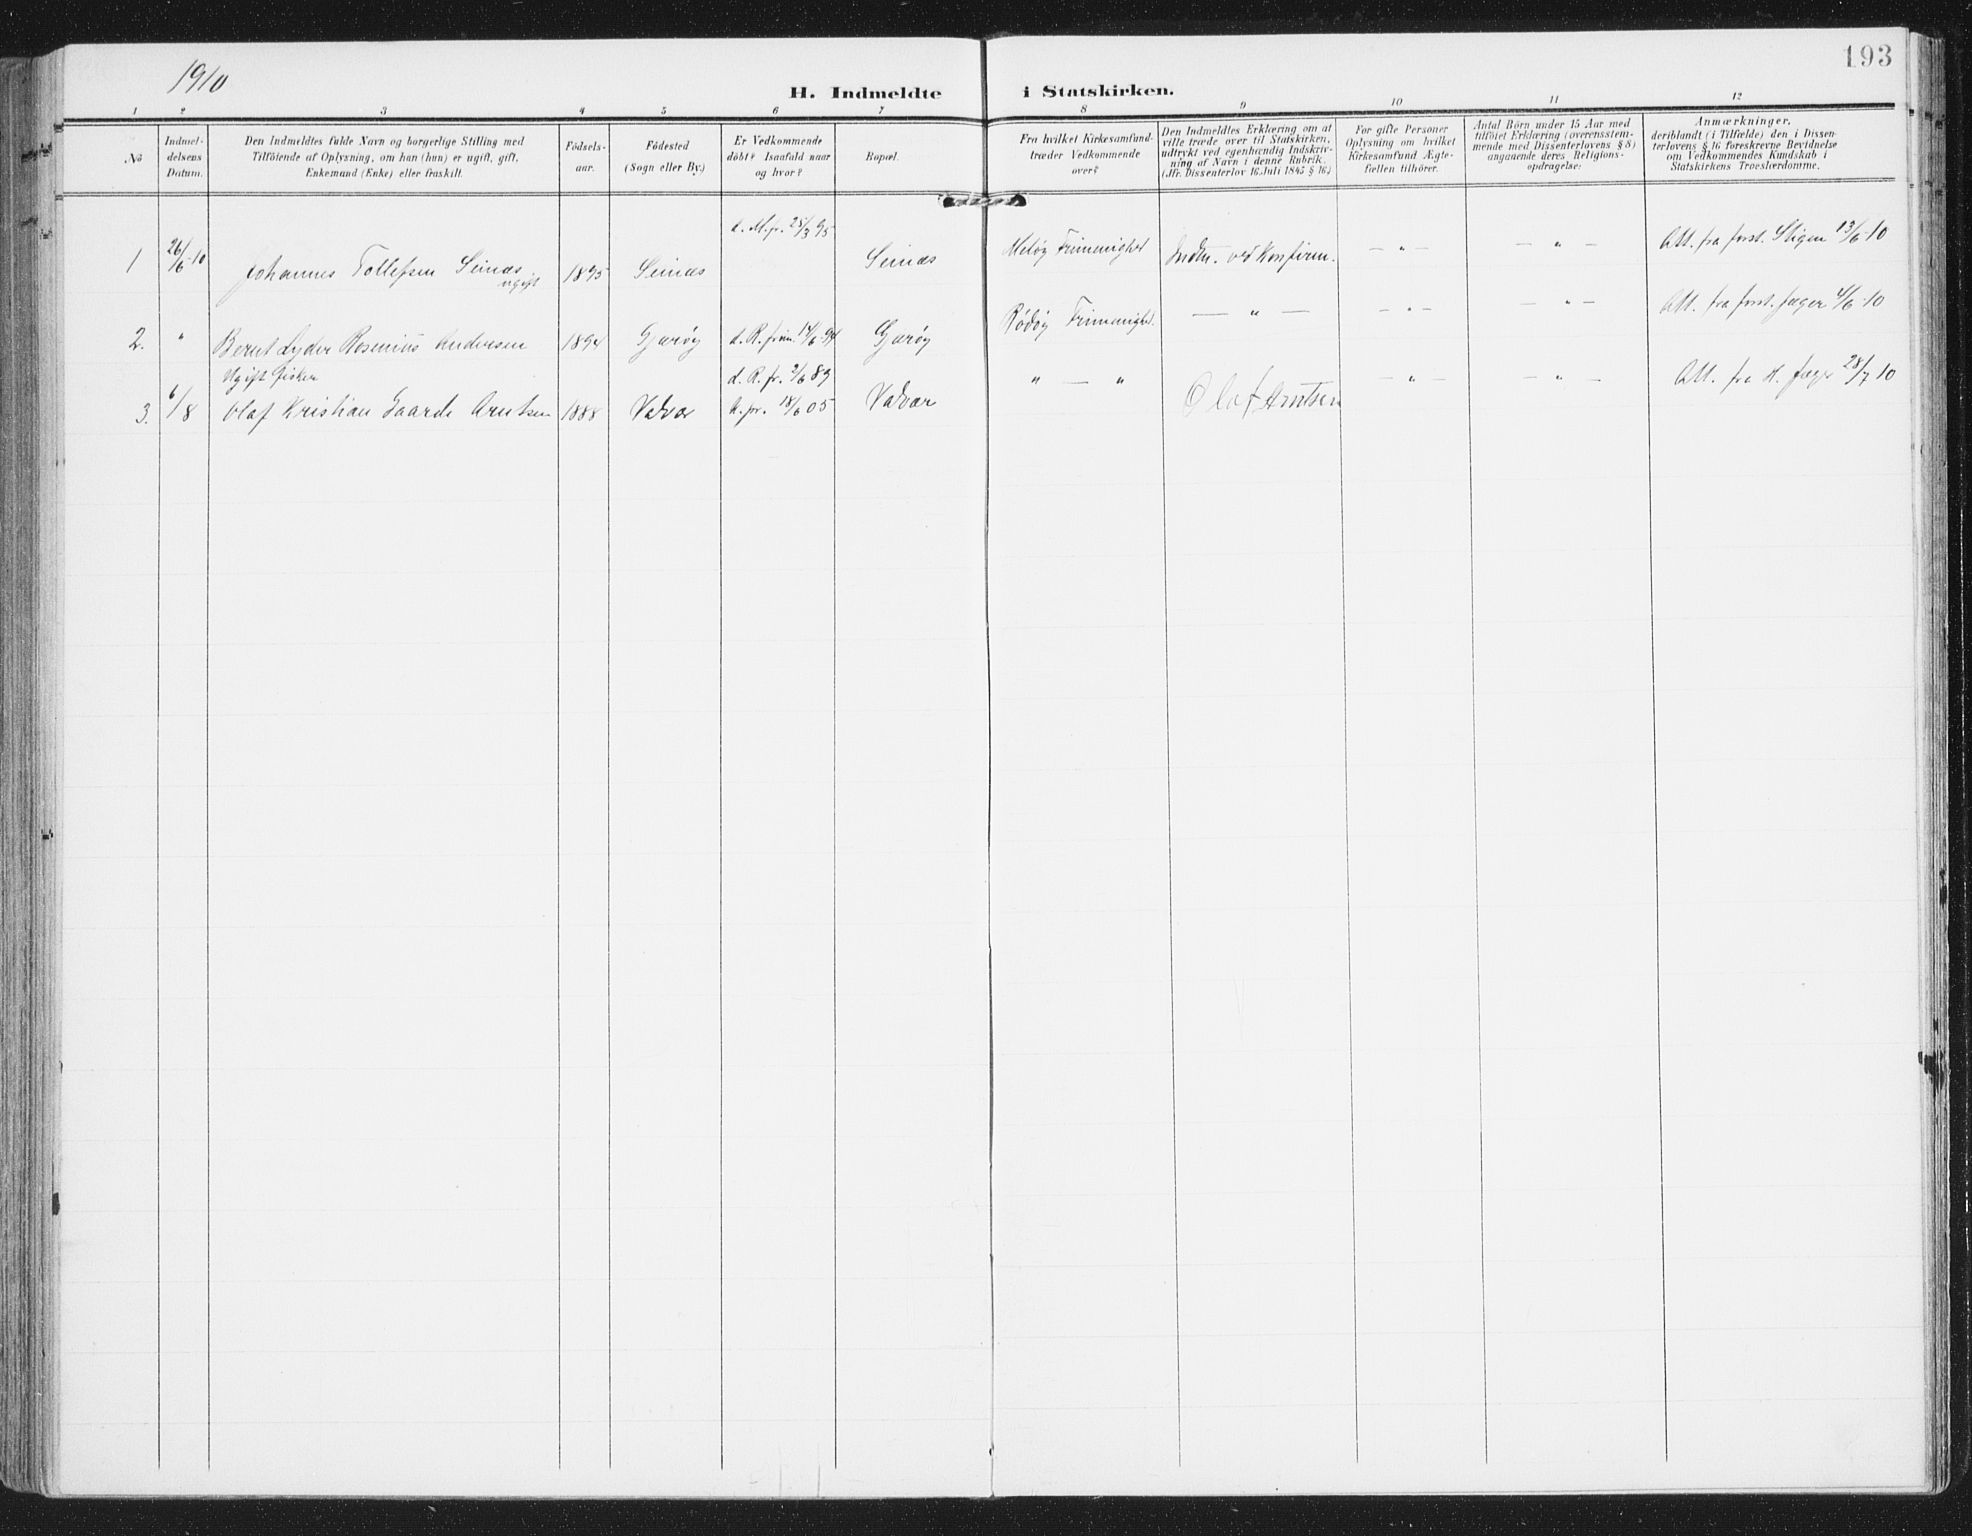 193
1910
H. Indmeldte i Statskirken.
1 2 3 4 5 6 7 8 9 10 11 12
No
Indmel-
delsens
Datum.
Den Indmeldtes fulde Navn og borgerlige Stilling med
Tilföiende af Oplysning, om han (hun) er ugift, gift,
Enkemand (Enke) eller fraskilt.
Födsels-
aar.
Födested
(Sogn eller By.)
Er Vedkommende
döbt? Isaafald naar
og hvor?
Bopæl.
Fra hvilket Kirkesamfund
træder Vedkommende
over?
Den Indmeldtes Erklæring om at
ville træde over til Statskirken,
udtrykt ved egenhændig Indskriv-
ning af Navn i denne Rubrik.
(Jfr. Dissenterlov 16 Juli 1845 § 16.)
For gifte Personer
Oplysning om hvilket
Kirkesamfund Ægte-
fællen tilhörer.
Antal Börn under 15 Aar med
tilföiet Erklæring (overensstem-
mende med Dissenterlovens § 8)
angaaende deres Religions-
opdragelse:
Anmærkninger,
deriblandt (i Tilfælde) den i Dissen-
terlovens § 16 foreskrevne Bevidnelse
om Vedkommendes Kundskab i
Statskirkens Troeslærdomme.
d. M. fr. 25/3 95
1 26/6-10 Johannes Tollefsen Seines 1895 Seines Seines Meløy Frimenighet Indm. ved Konfirm. — " — — " — Att. fra forst. Stigen 13/6-10
ugift
2. " Bernt Lyder Rosenius Andersen 1894 Gjærøy d. R. frim. 14/6-94 Gjærøy Rödöy Frimenighet. — " — — " — — " — Att. fra forst. Jæger 4/6-10
Ugift Fisker d. R. fr. 2/6 89
3. 6/8 Olaf Kristian Arntsen 1888 Valvær k. fr. 18/6 05 Valvær " — " Olaf Arntsen — " — — " — Att. fra H. Jæger 28/7 10